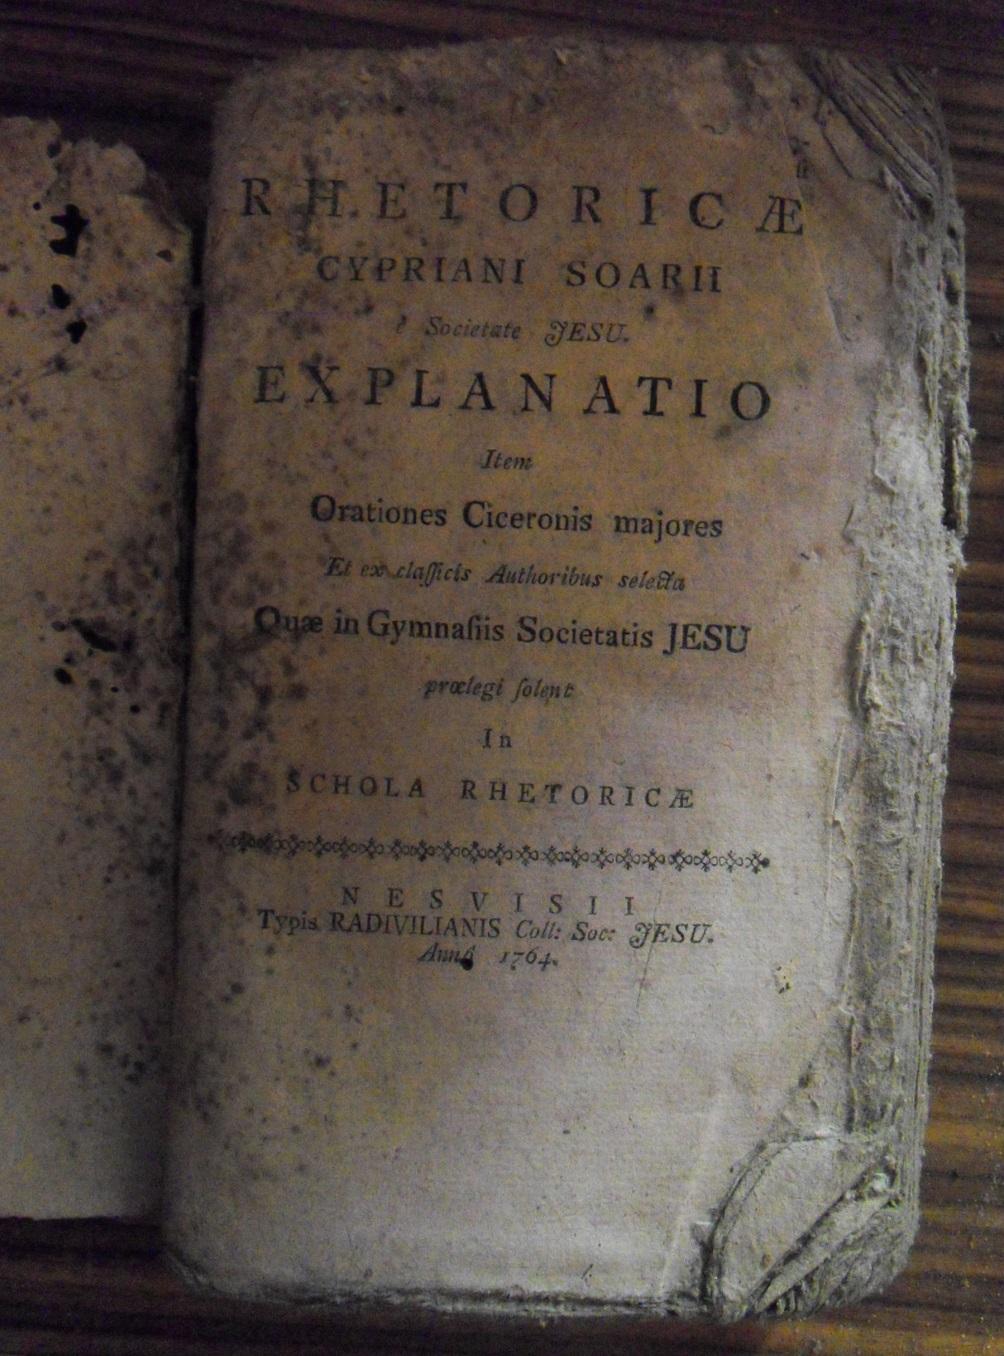 RHETORICÆ
CYPRIANI SOARII
è Societate JESU.
EXPLANATIO
Item
Orationes Ciceronis majores
Et ex claſſicis Authoribus selecta
Quæ in Gymnaſiis Societatis JESU
prœlegi ſolent
In
SCHOLA RHETORICÆ
NESVISII
Typis RADIVILIANIS Coll: Soc: JESU.
Annô 1764.